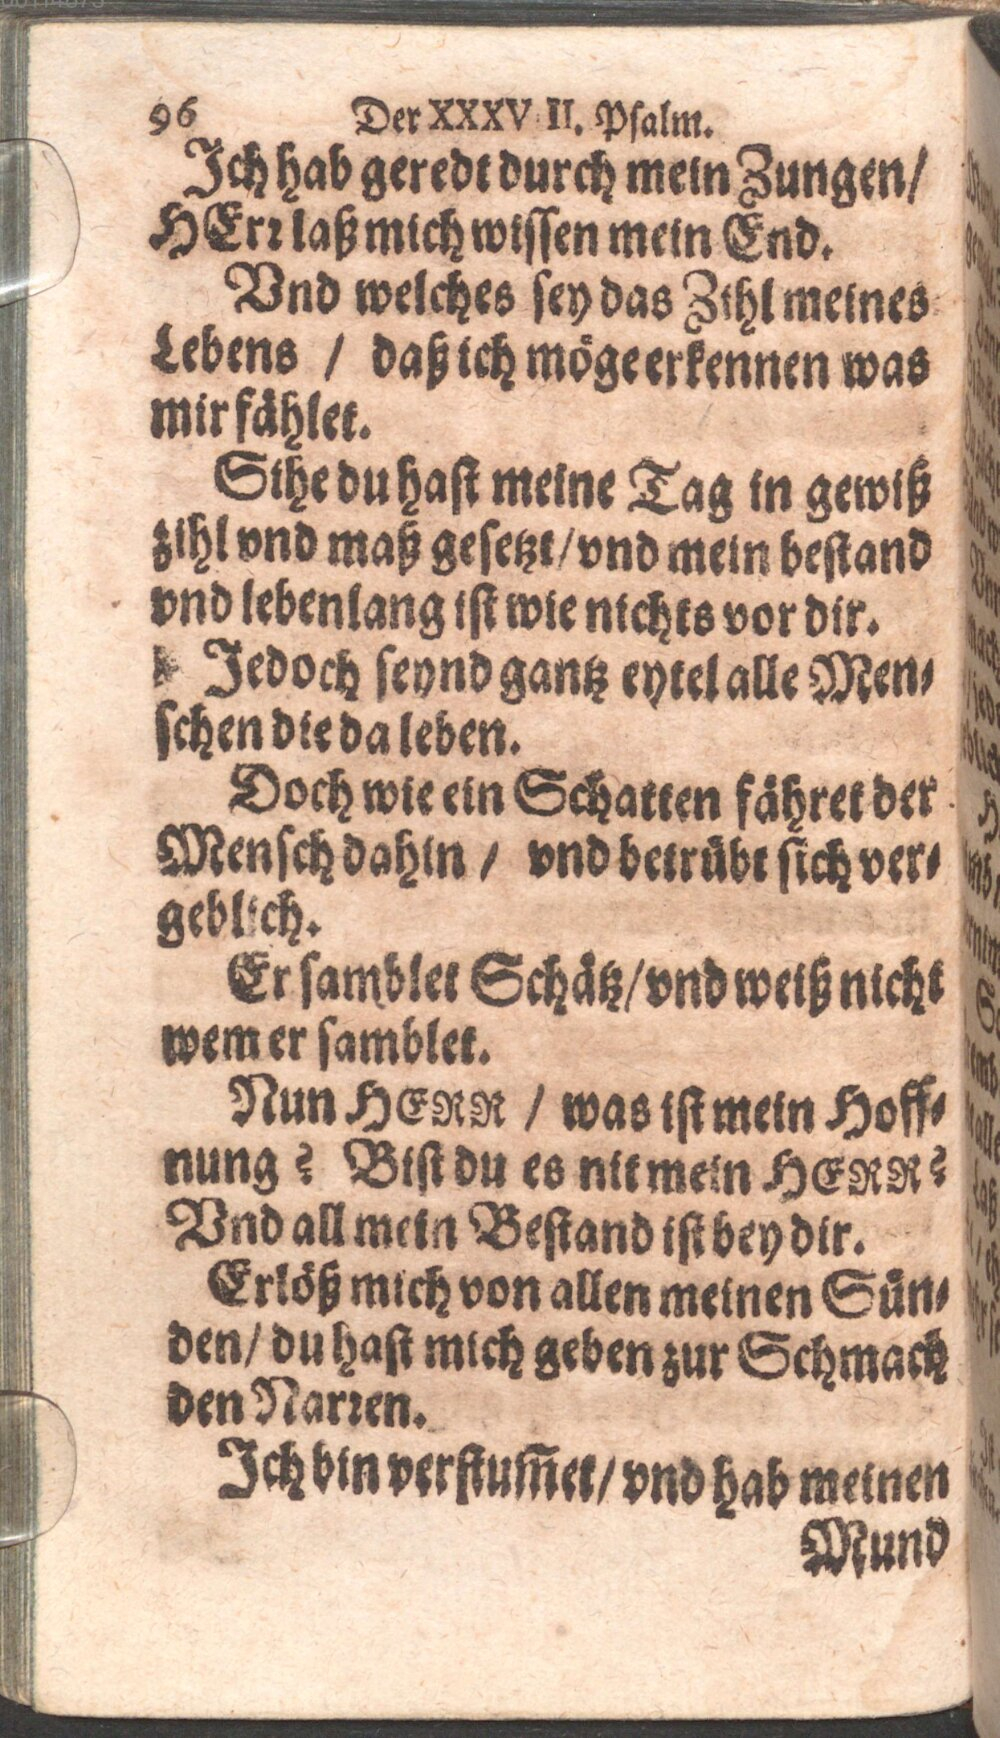 96 Der XXXV II. Psalm.
Ich hab geredt durch mein Zungen/
HErr laß mich wissen mein End.
Vnd welches sey das Zihl meines
Lebens / daß ich möge erkennen was
mir fählet.
Sihe du hast meine Tag in gewiß
zihl vnd maß gesetzt/ vnd mein bestand
vnd lebenlang ist wie nichts vor dir.
Jedoch seynd gantz eytel alle Men-
schen die da leben.
Doch wie ein Schatten fähret der
Mensch dahin / vnd betrübt sich ver-
geblich.
Er samblet Schätz/ vnd weiß nicht
wem er samblet.
Nun HERR / was ist mein Hoff-
nung? Bist du es nit mein HERR?
Vnd all mein Bestand ist bey dir.
Erlöß mich von allen meinen Sün-
den/ du hast mich geben zur Schmach
den Narren.
Ich bin verstum̃et/ vnd hab meinen
Mund